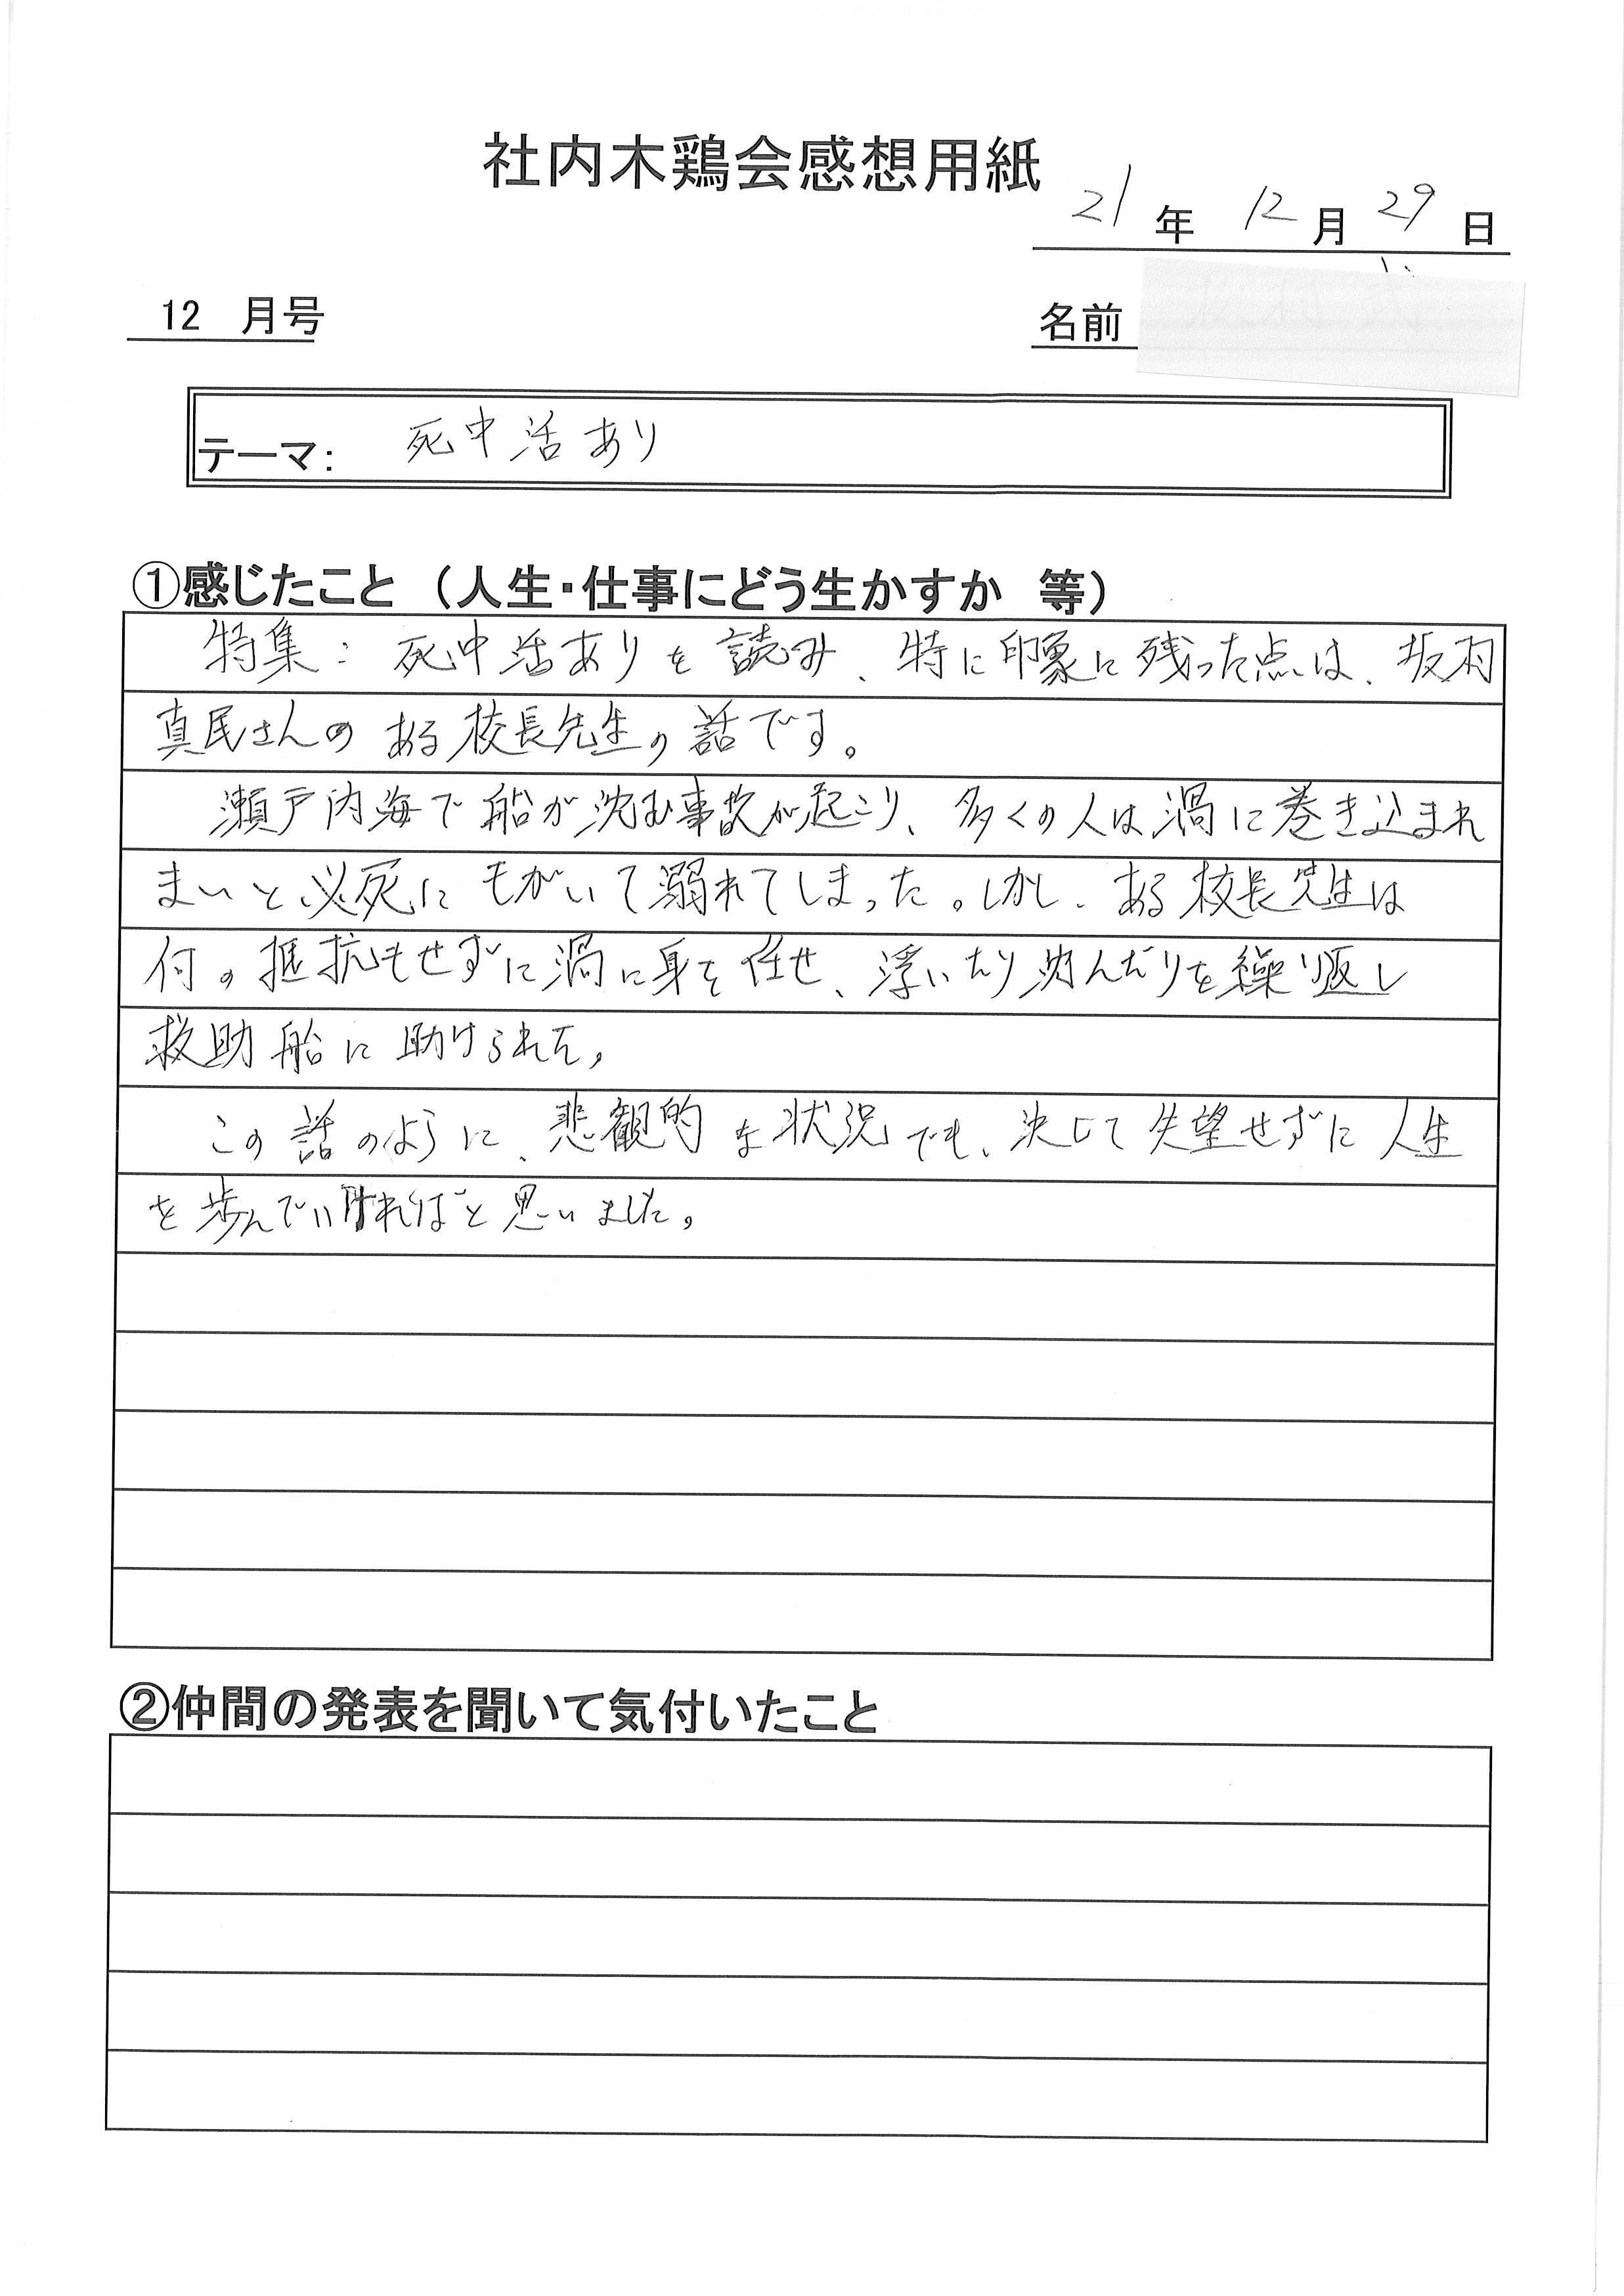 社内木鶏会感想用紙
21年 12月 29日
12 月号
名前
テーマ: 死中活あり
①感じたこと (人生・仕事にどう生かすか 等)
特集:死中活ありを読み、特に印象に残った点は、坂村
真民さんのある校長先生の話です。
瀬戸内海で船が沈む事故が起こり、多くの人は渦に巻き込まれ
まいと必死にもがいて溺れてしまった。しかし、ある校長先生は
何の抵抗もせずに渦に身を任せ、浮いたり沈んだりを繰り返し
救助船に助けられた。
この話のように、悲観的な状況でも、決して失望せずに人生
を歩んでいければと思いました。
②仲間の発表を聞いて気付いたこと